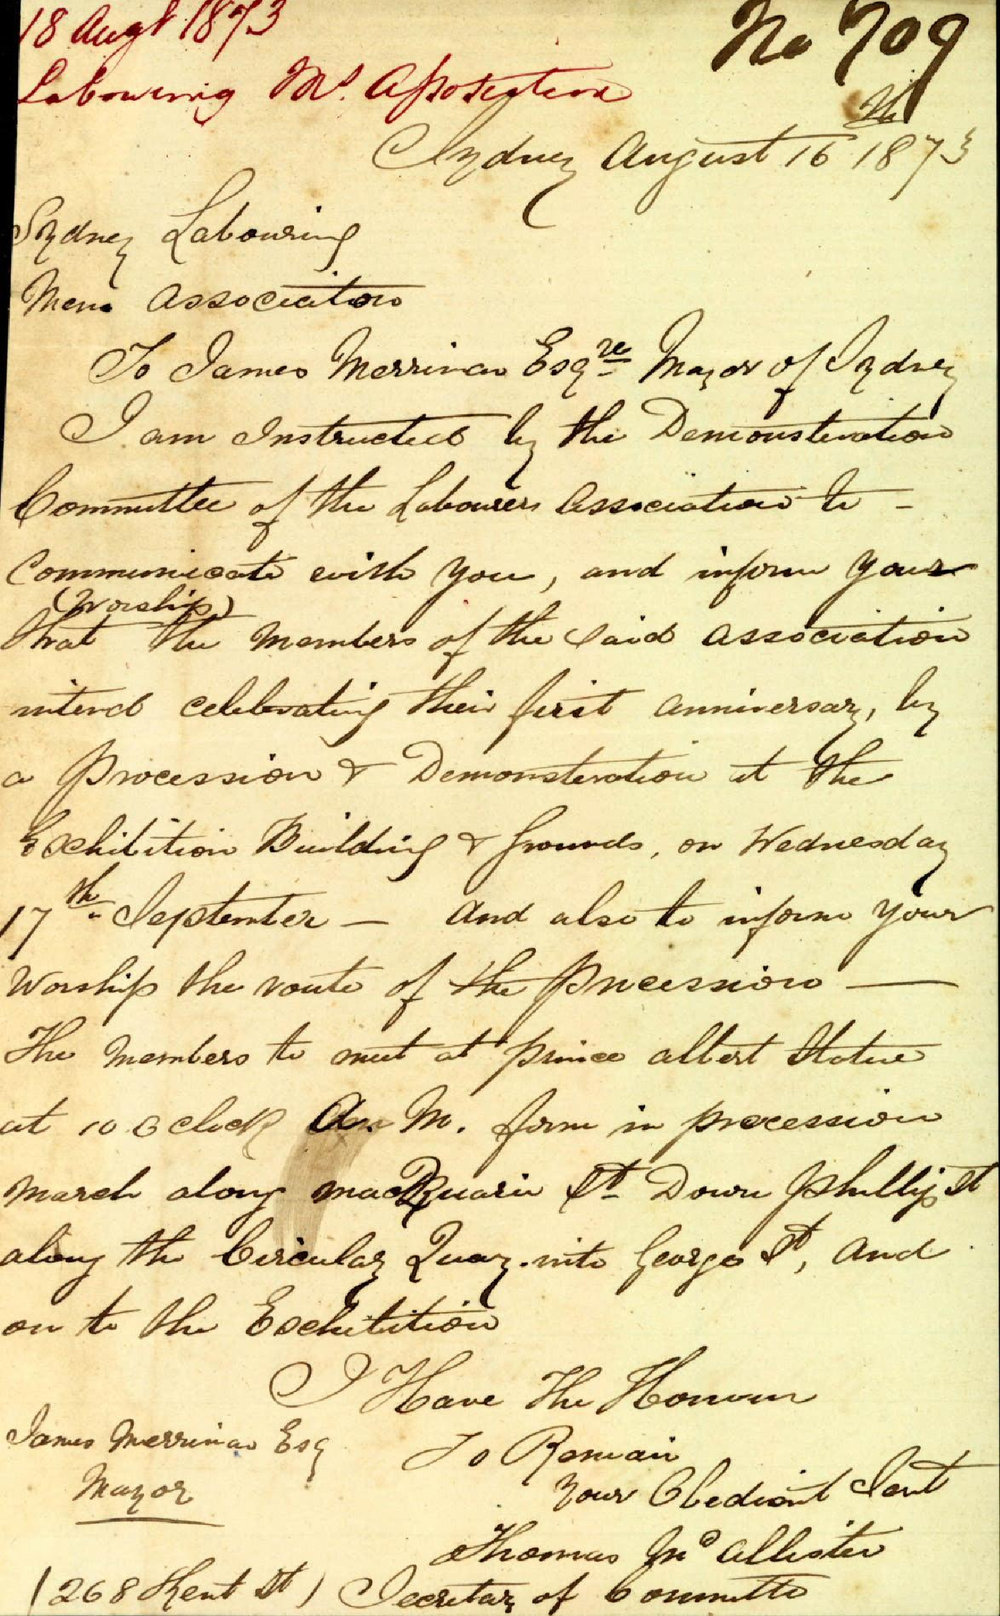 18 Augt 1873
No 709
Labouring Ms. Association
Sydney August 16th 1873
Sydney Labouring
Mens Association
To James Merriman Esqre Mayor of Sydney
I am instructed by the Demonsteration
Committee of the Labourers Association to -
Communicate with you, and inform your
(Worship)
that the members of the said association
intend celebrating their first anniversary, by
a Procession & Demonsteration at the
Exchibition Building & Grounds, on Wednesday
17th September - And also to inform your
Worship the route of the Procession —
The Members to meet at Prince Albert Statue
at 10 O Clock A M. form in procession
March along MacQuarie St Down Phillip St
along the Circular Quay into George St, And
on to the Exchibition
I Have The Honour
To Remain
Your Obedient Sert
Thomas Mc Allister
Secretary of Committe
James Merriman Esq
Mayor
(268 Kent St)